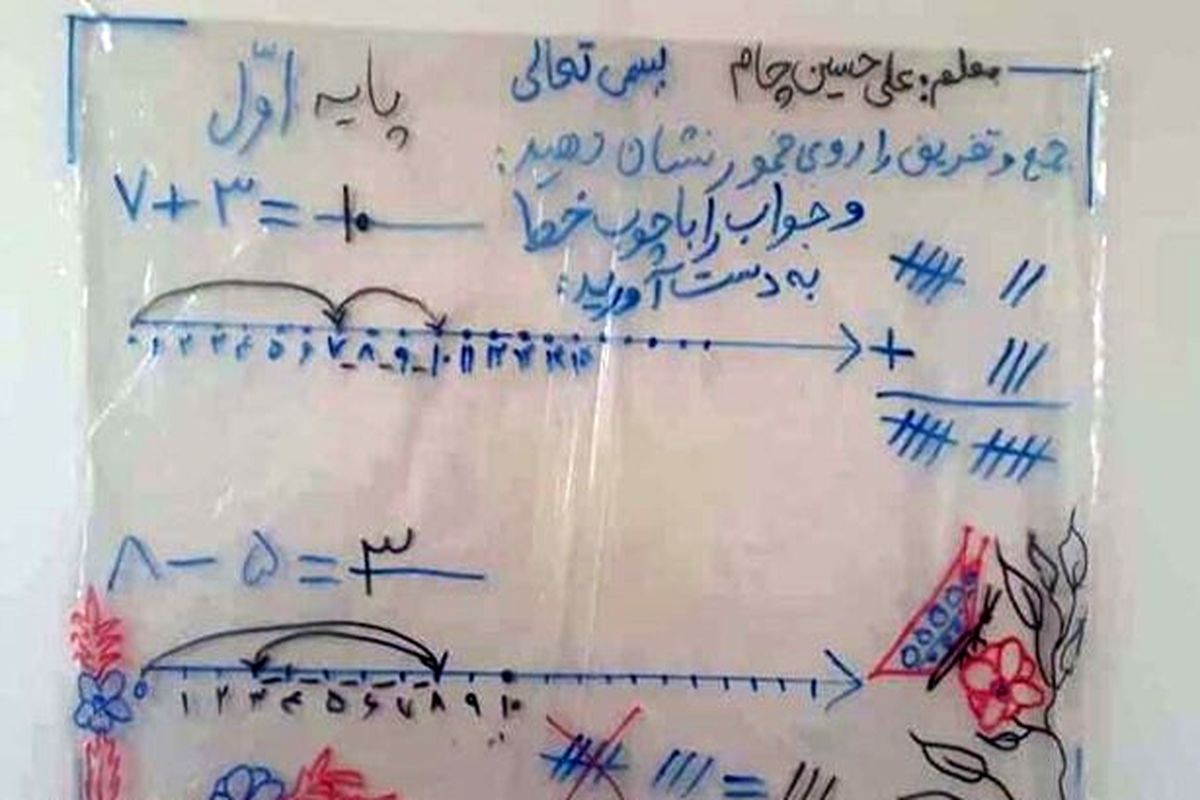 معلم: علی حسین چام بسمی تعالی پایه اوّل
جمع و تفریق را روی محور نشان دهید:
و جواب را با چوب خط
به دست آورید:
۷ + ۳ = ۱۰
۰ ۱ ۲ ۳ ۴ ۵ ۶ ۷ ۸ ۹ ۱۰ ۱۱ ۱۲ ۱۳ ۱۴ ۱۵
+
۸ - ۵ = ۳
۰ ۱ ۲ ۳ ۴ ۵ ۶ ۷ ۸ ۹ ۱۰
=